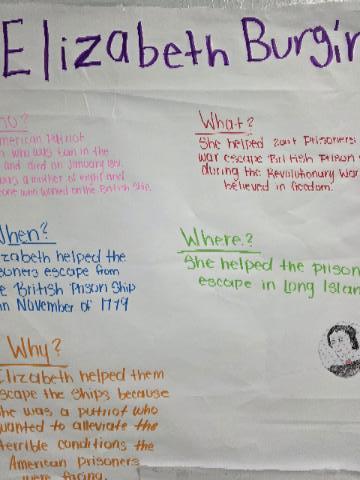 Elizabeth Burgin
Who?
American Patriot
who was born in the
and died on January 1st.
was a mother of eight and
someone who worked on the British Ship.
What?
She helped 200+ Prisoners
war escape British Prison
during the Revolutionary War
believed in freedom.
When?
Elizabeth helped the
prisoners escape from
the British Prison Ship
in November of 1779
Where?
She helped the prison
escape in Long Islan
Why?
Elizabeth helped them
escape the ships because
she was a patriot who
wanted to alleviate the
terrible conditions the
American prisoners
were facing.